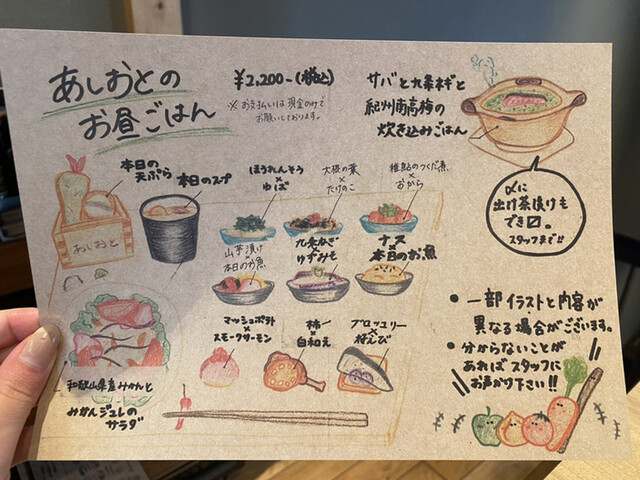 あしおとの
お昼ごはん
¥2,200-(税込)
※お支払いは現金のみで
お願いしております。
サバと九条ネギと
紀州南高梅の
炊き込みごはん
〆に
出汁茶漬けも
でき〼。
スタッフまで!!
本日の
天ぷら
あしおと
本日のスープ
ほうれんそう
×
ゆば
大根の葉
×
たけのこ
稚鮎のつくだ煮
×
おから
山芋漬け
×
本日のお魚
九条ねぎ
×
ゆずみそ
ナス
×
本日のお魚
マッシュポテト
×
スモークサーモン
柿
×
白和え
ブロッコリー
×
桜えび
和歌山県産みかんと
みかんジュレの
サラダ
・一部イラストと内容が
異なる場合がございます。
・分からないことが
あればスタッフに
お声かけ下さい!!